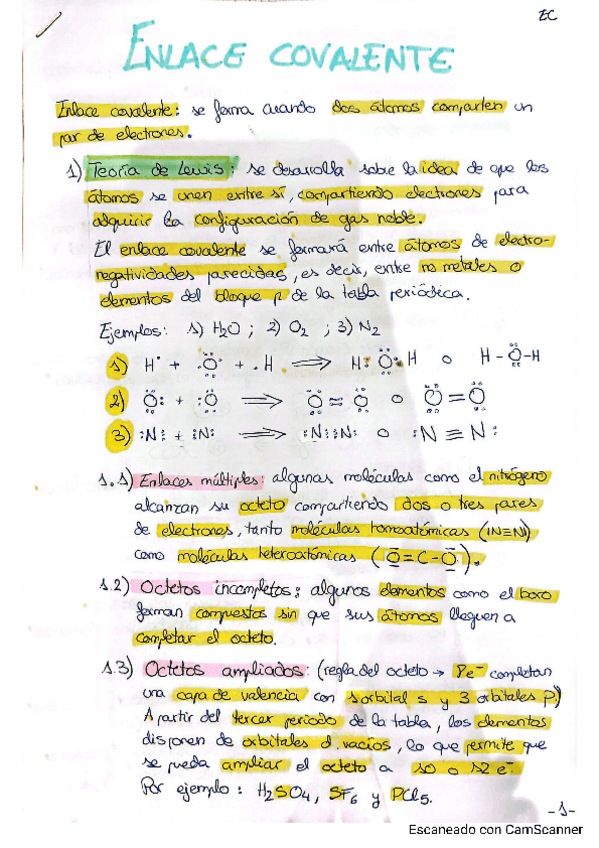 EC
ENLACE COVALENTE
Enlace covalente: se forma cuando dos átomos comparten un
par de electrones.
1) Teoría de Lewis: se desarrolla sobre la idea de que los
átomos se unen entre sí, compartiendo electrones para
adquirir la configuración de gas noble.
El enlace covalente se formará entre átomos de electro-
negatividades parecidas, es decir, entre no metales o
elementos del bloque p de la tabla periódica.
Ejemplos: 1) H2O ; 2) O2 ; 3) N2
1) H· + ·Ö· + ·H ⟹ H:Ö:H o H-Ö-H
2) Ö: + :Ö ⟹ Ö::Ö o Ö=Ö
3) :N: + :N: ⟹ :N:::N: o :N≡N:
1.1) Enlaces múltiples: algunas moléculas como el nitrógeno
alcanzan su octeto compartiendo dos o tres pares
de electrones, tanto moléculas homoatómicas (IN≡NI)
como moléculas heteroatómicas (O=C-O).
1.2) Octetos incompletos: algunos elementos como el boro
forman compuestos sin que sus átomos lleguen a
completar el octeto.
1.3) Octetos ampliados: (regla del octeto → 8e⁻ completan
una capa de valencia con 1 orbital s y 3 orbitales p!)
A partir del tercer periodo de la tabla, los elementos
disponen de orbitales d vacíos, lo que permite que
se pueda ampliar el octeto a 10 o 12 e⁻.
Por ejemplo: H2SO4, SF6 y PCl5.
-1-
Escaneado con CamScanner